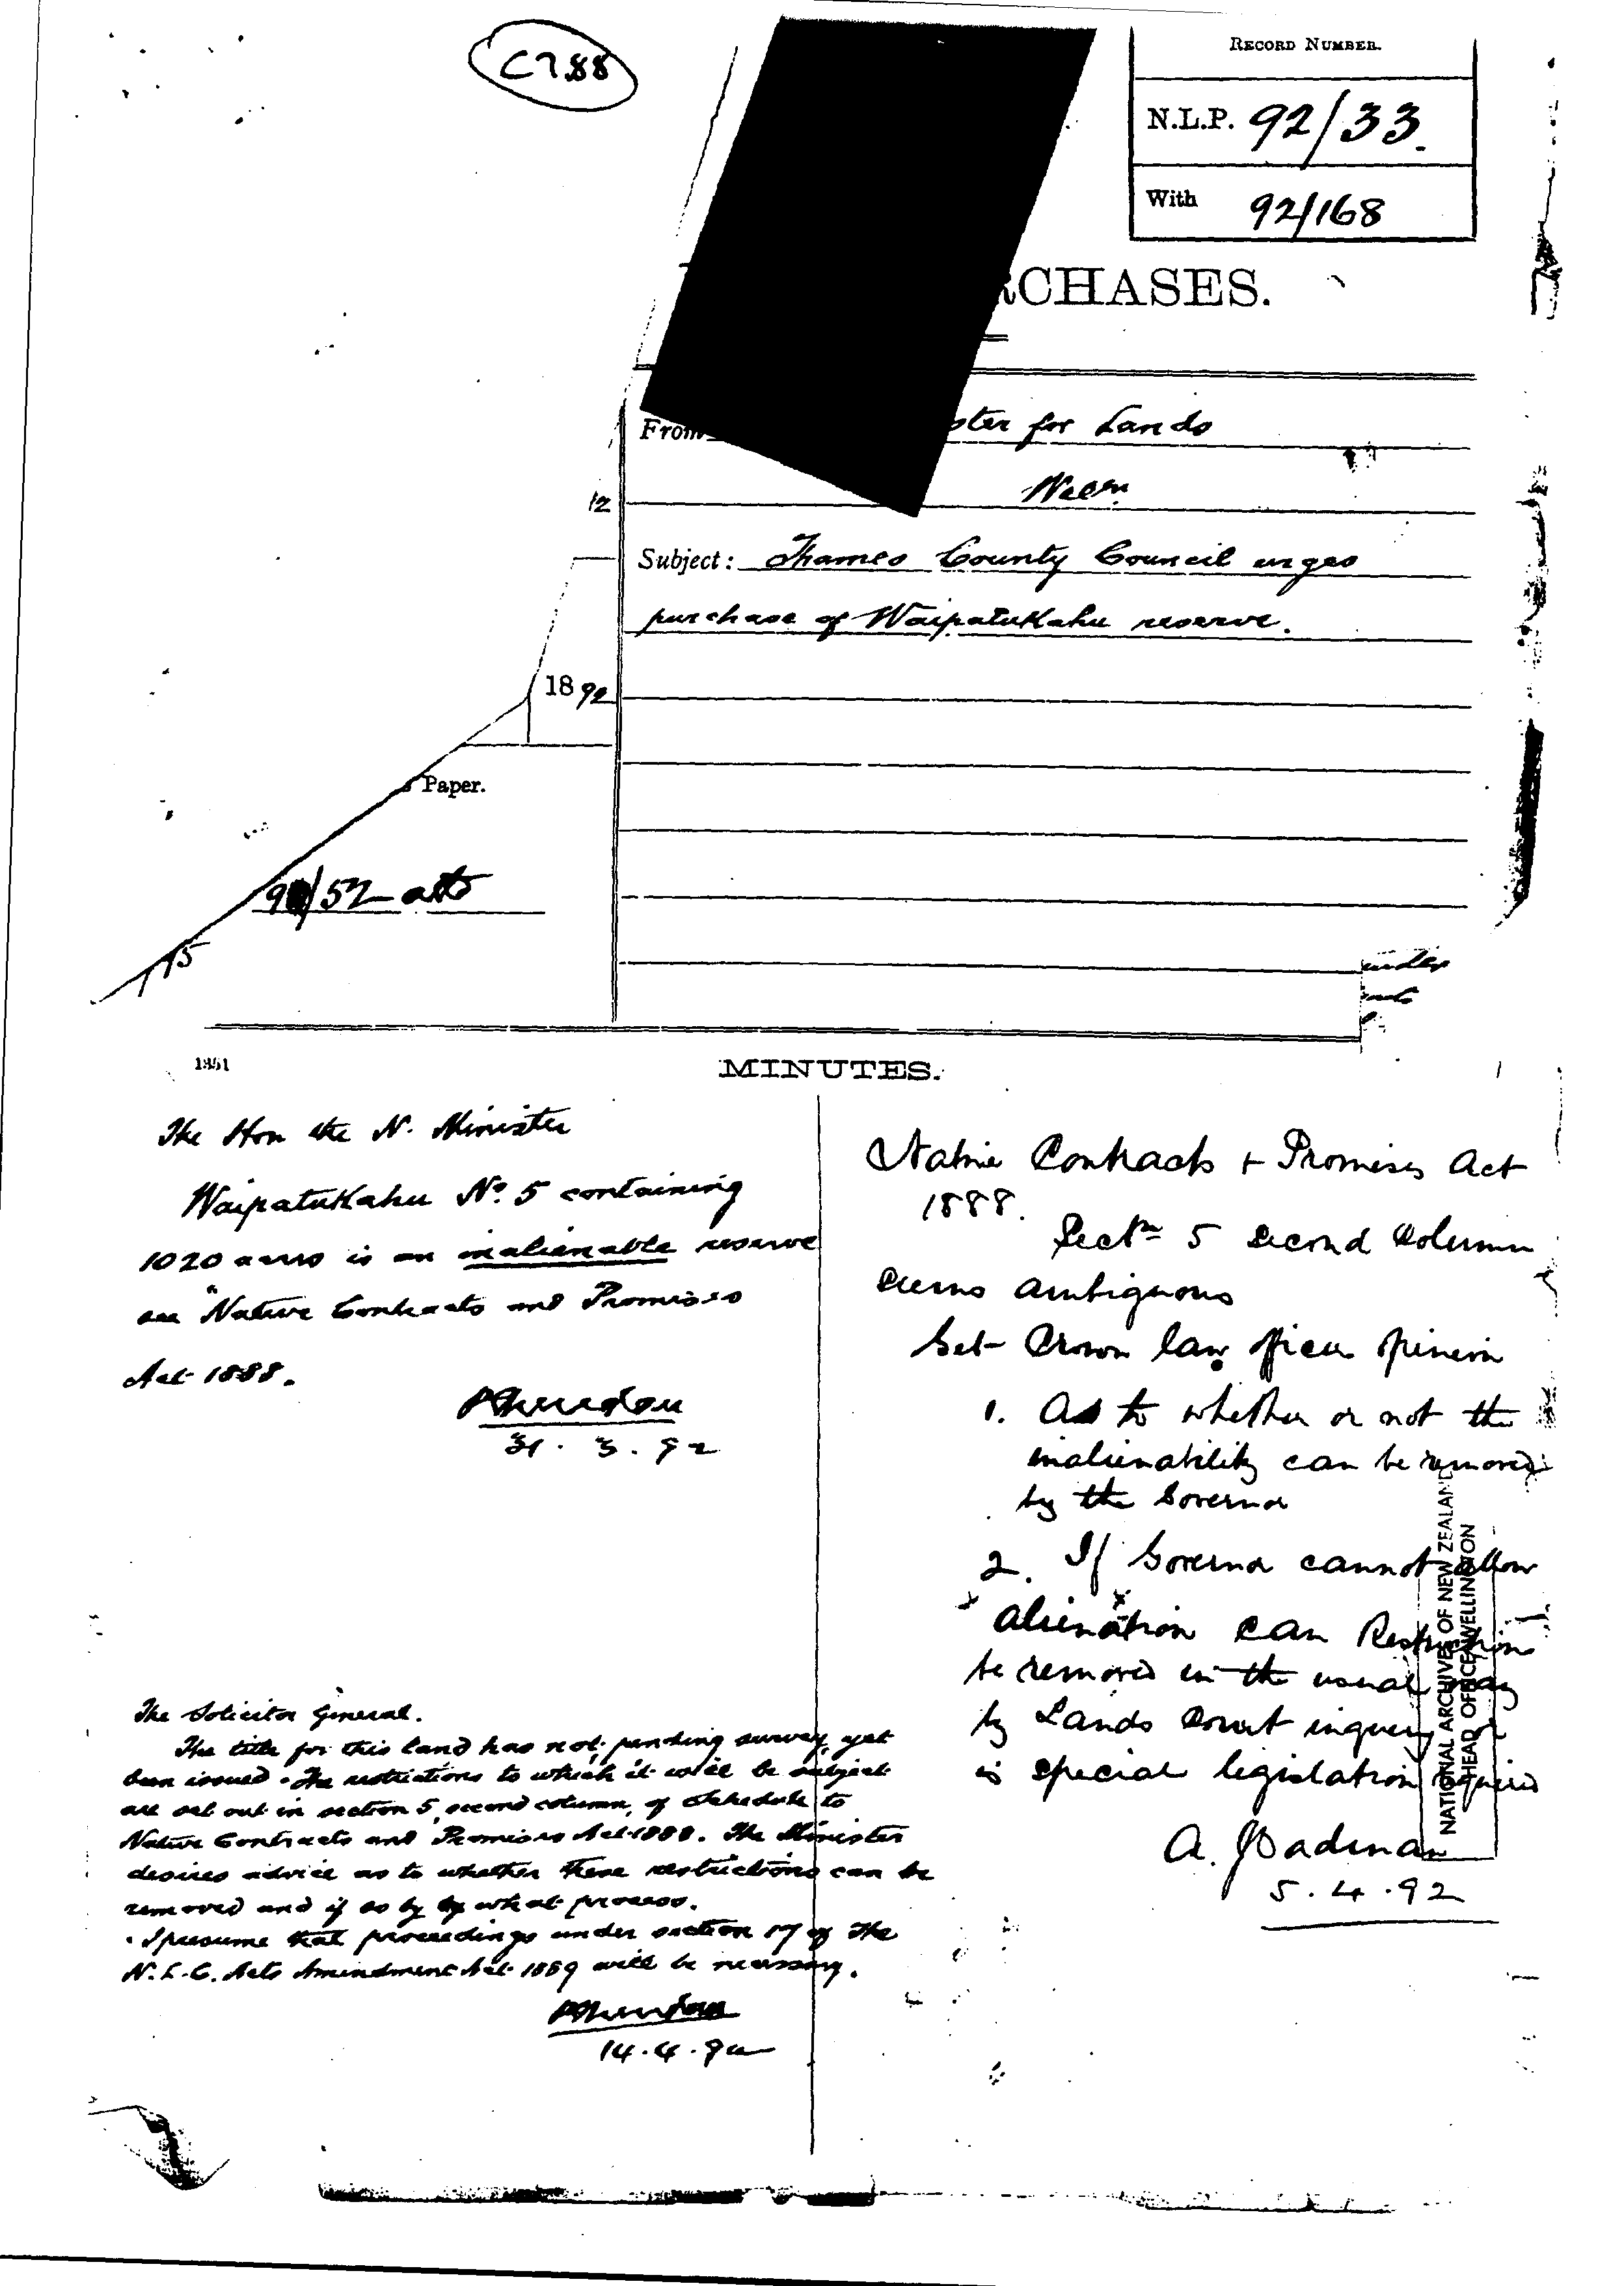 C788
RECORD NUMBER.
N.L.P. 92/33.
With 92/168
RCHASES.
From ster for Lands
12
Subject: Thames County Council urges
purchase of Waipatukahu reserve.
1892
Paper.
/52 atts
115
under
1351
MINUTES.
The Hon the N. Minister
Waipatukahu No. 5 containing
1020 acres is an inalienable reserve
see "Native Contracts and Promises
Act 1888.
31. 3. 92
Native Contracts + Promises Act
1888.
Sectn 5 second Column
seems ambiguous
Get Crown law officer opinion
1. As to whether or not the
inalienability can be removed
by the Governor
2. If Governor cannot allow
alienation can Restriction
be removed in the usual way
by Lands Court inquiry or
is special legislation required
A. J Cadman
5.4.92
The Solicitor General.
The title for this land has not, pending survey, yet
been issued. The restrictions to which it will be subject
are set out in section 5, second column, of Schedule to
Native Contracts and Promises Act 1888. The Minister
desires advice as to whether these restrictions can be
removed and if so by by what process.
I presume that proceedings under section 17 of the
N.L.C. Acts Amendment Act 1889 will be necessary.
14.4.92
NATIONAL ARCHIVES OF NEW ZEALAND
HEAD OFFICE WELLINGTON